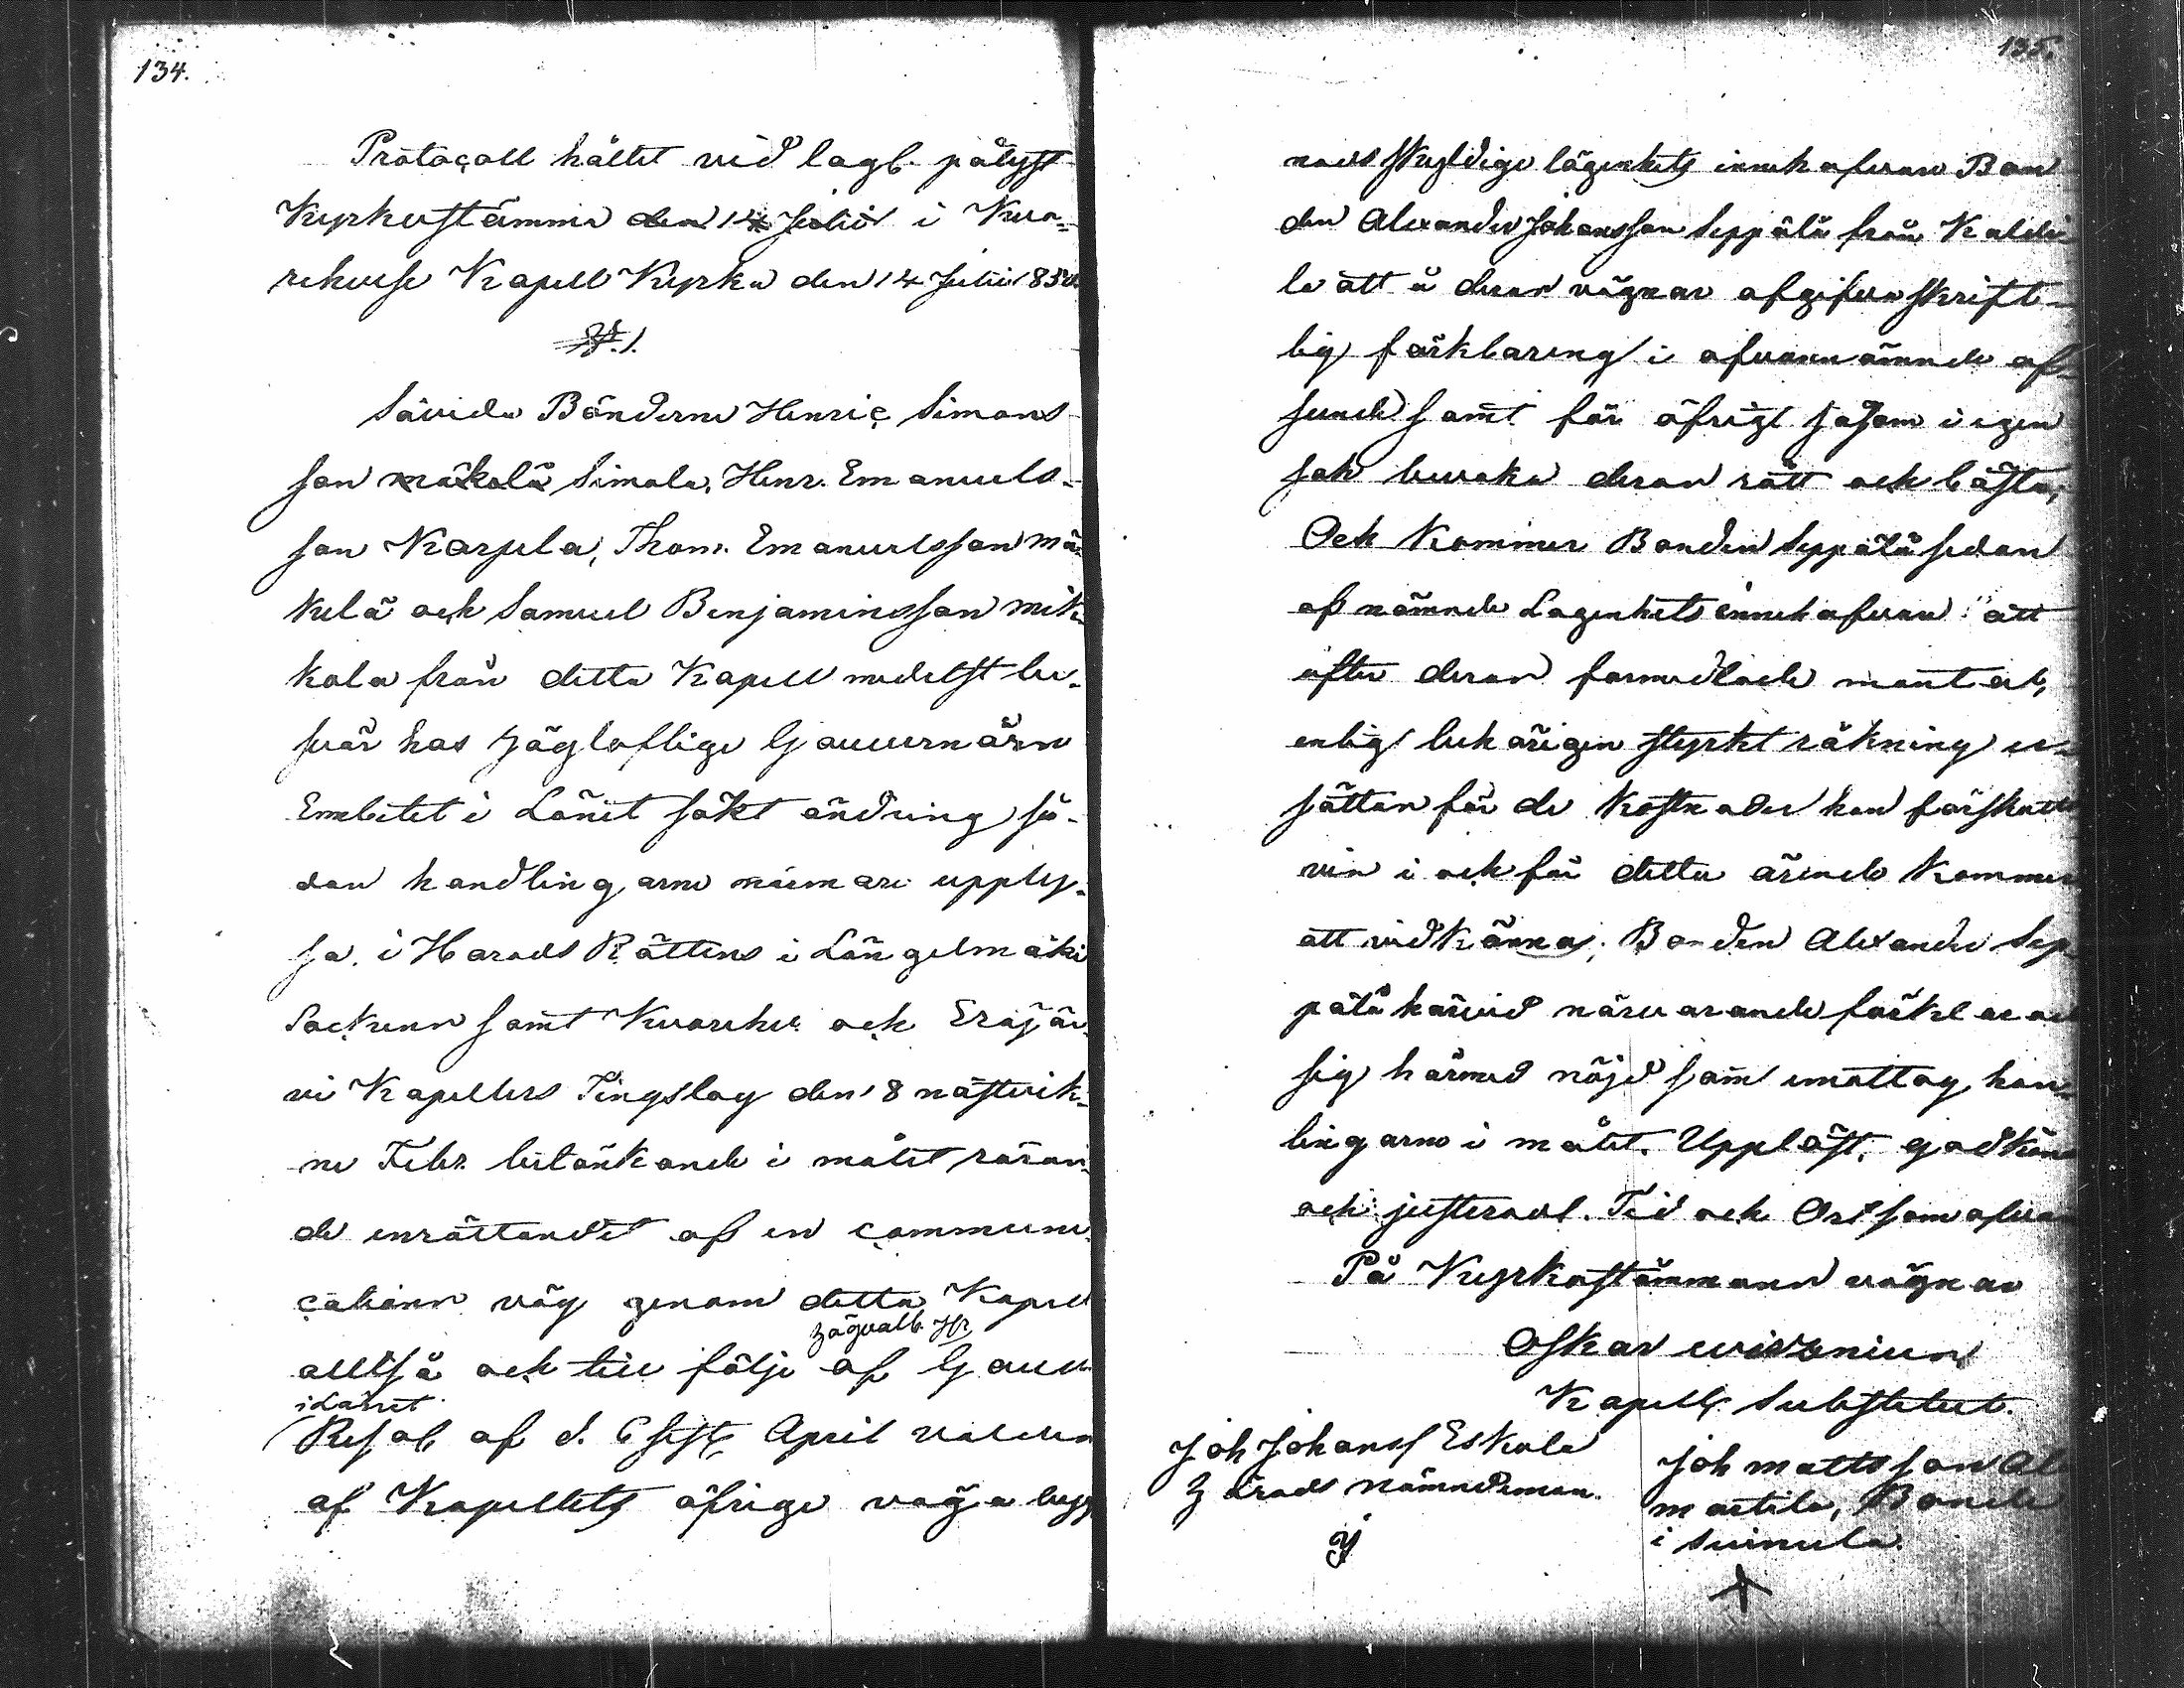 134.
Protocoll hållet vid lagl. pålyst
Kyrkostämma den 14 Julii i Kuo-
rehvesi Kapell Kyrka den 14 Julii 1850.
§.1.
Såvida Bönderne Henric Simons
son Mäkelä Simola, Henr. Emanuels-
son Karjula, Thom. Emanuelsson Mä-
kelä och Samuel Benjaminsson Mik-
kola från detta Kapell medelst be-
svär hos Högloflige Gouvernörs
Embetet i Länet sökt ändring så-
dan handlingarne närmare upply-
sa, i Harads Rättens i Längelmäki
Sockenn samt Kuorehv. och Eräjär-
vi Kapellers Tingslag den 8 nästvik-
ne Febr. betänkande i målet röran-
de inrättandet af en communi-
cations väg genom detta Kapell
högvalb. Hr
alltså och till följe af Gouv.
i Länet
Resol. af d. 6 sistl. April valdes
af Kapellets öfrige väga bygg
135.
nads skyldige lägenhets innehafvare Bon
den Alexander Johansson Seppälä från
le att å deras vägnar afgifva skrift-
lig förklaring i ofvannämnde af-
seende samt för öfrigt såsom i egen
sak bevaka deras rätt och bästa,
Och kommer Bonden Seppälä sedan
af nämnde Lägenhets innehafvare att
efter deras förmedlade mantal,
enlig behörigen styrkt räkning er-
sättas för de kostnader han förskotts
vis i och för detta ärende kommer
att vidkännas; Bonden Alexander Sep
pälä härvid närvarande förklarade
sig härmed nöjd som emottog hand
lingarne i målet. Uppläst, godkänd
och justerad. Tid och Ort som ofvan
På Kyrkostämmans vägnar
Oskar
Kapells Substitut.
Joh Johanss Eskola
Härads nämndeman.
Joh Mattsson Al
martila, Bonde
i Suinula.